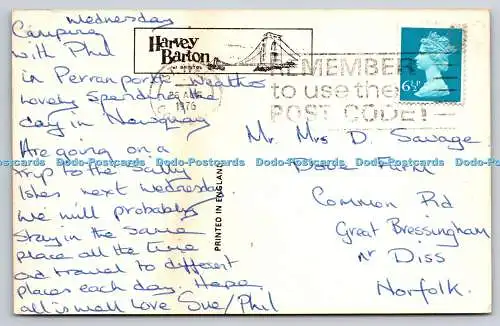 Wednesday
Camping
with Phil
in Perranporth. Weather
lovely spending the
day in Newquay
Are going on a
trip to the Scilly
Isles next Wednesday
We will probably
stay in the same
place all the time
and travel to different
places each day. Hope
all is well Love Sue/Phil
Harvey
Barton
of BRISTOL
AUG
1976
REMEMBER
to use the
POST CODE!
6½P
PRINTED IN ENGLAND
Mr. Mrs D. Savage
Dove Farm
Common Rd
Great Bressingham
nr Diss
Norfolk.
Dodo-Postcards Dodo-Postcards Dodo-Postcards Dodo-Postcards Dodo-Postcards